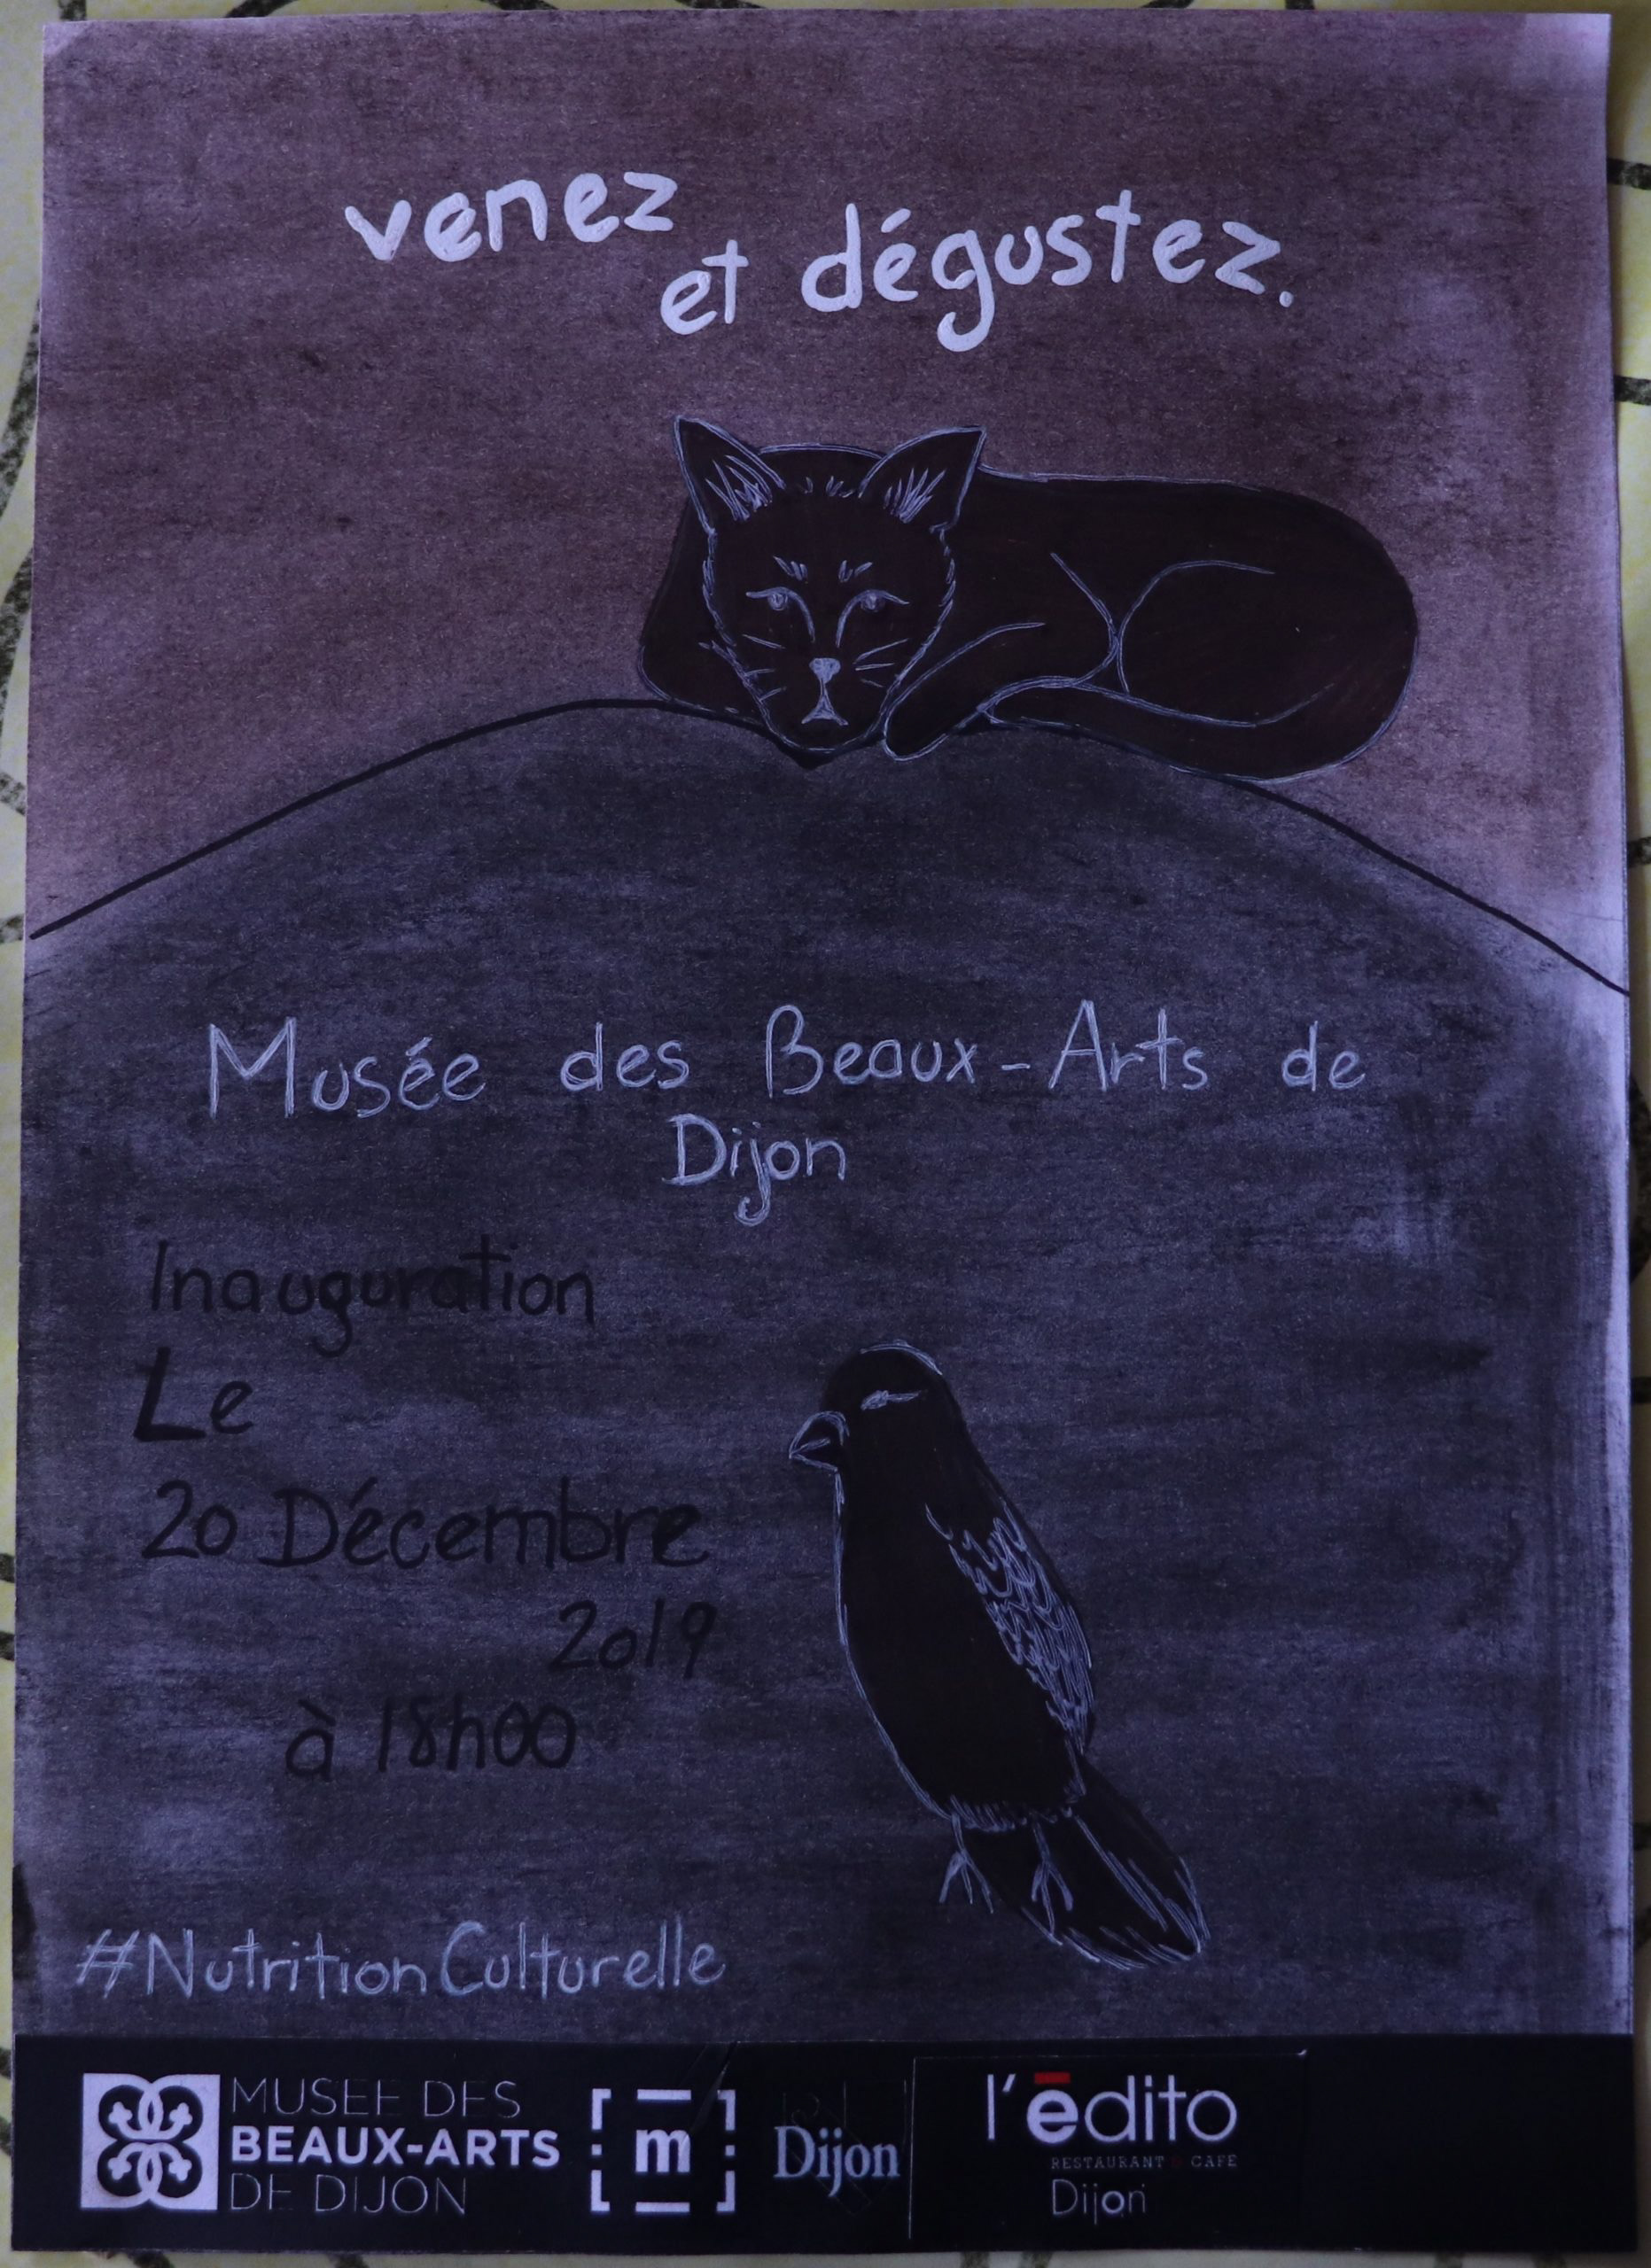 venez
et dégustez.
Musée des Beaux-Arts de
Dijon
Inauguration
Le
20 Décembre
2019
à 18h00
#NutritionCulturelle
MUSEE DES
BEAUX-ARTS
DE DIJON
m
Dijon
l'ēdito
RESTAURANT & CAFÉ
Dijon